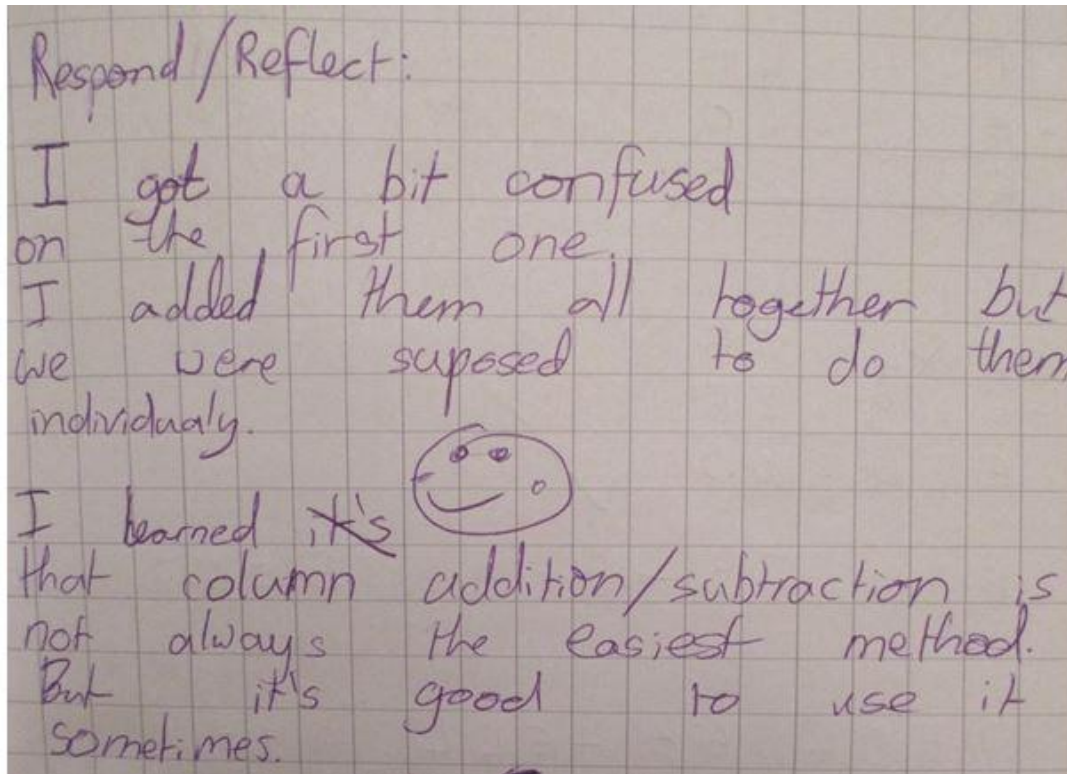 Respond/Reflect:
I got a bit confused
on the first one.
I added them all together but
we were suposed to do them
individualy.
I learned it's
that column addition/subtraction is
not always the easiest method.
But it's good to use it
sometimes.